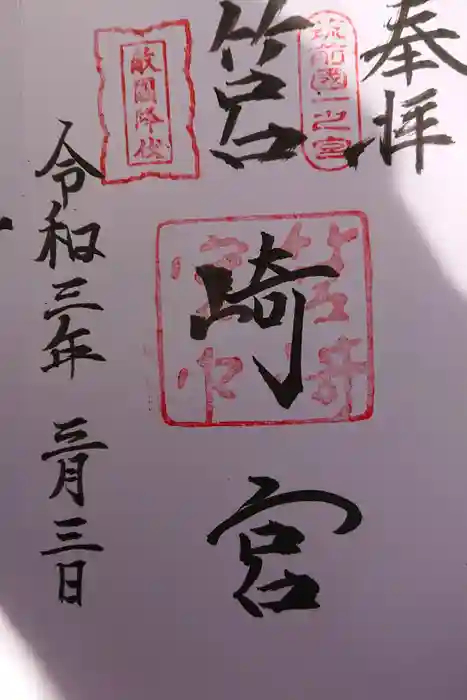 奉拝
筑前國一之宮
筥崎宮
筥崎宮印
敵國降伏
令和三年 三月三日